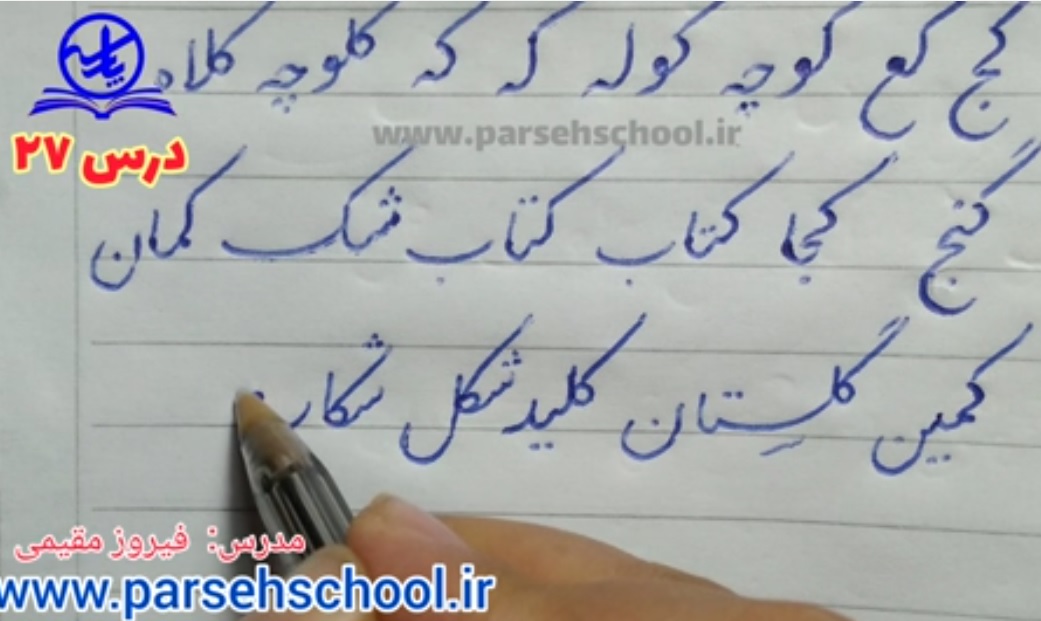 کج کع کوچه کوله که که کلوچه کلاه
www.parsehschool.ir
درس ۲۷
گنج کجا کتاب کتاب شک کمان
کمین گلستان کلید شکل شکار
مدرس: فیروز مقیمی
www.parsehschool.ir